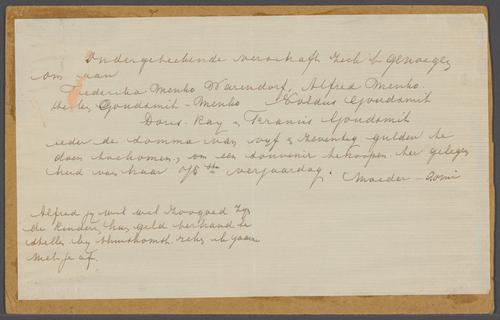 Ondergeteekende verschaft zich 't genoegen
om aan
Frederika Menko Warendorf, Alfred Menko
Goudsmit-Menko Goudsmit
Doris. Ray & Francis Goudsmit
ieder de somma van vyf & zeventig gulden te
doen toekomen, om een souvenir te koopen. ter gelegen
heid van haar 75 ste verjaardag. Moeder - Omi
Alfred jy wil wel zoo goed zyn
de kinders hun geld ter hand te
stellen by thuiskomst. reken ik gaarne
met je af.